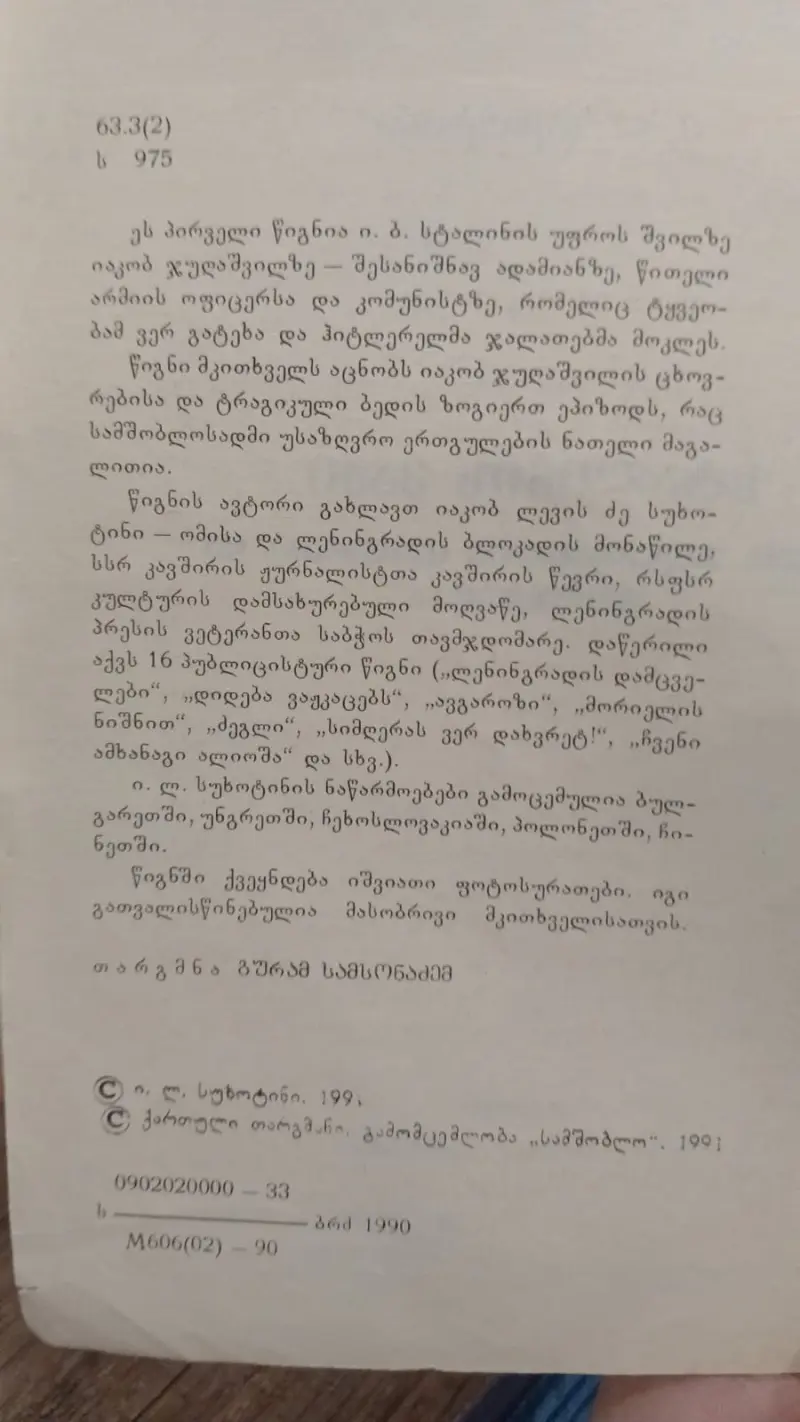 63.3(2)
ს 975
ეს პირველი წიგნია ი. ბ. სტალინის უფროს შვილზე
იაკობ ჯუღაშვილზე — შესანიშნავ ადამიანზე, წითელი
არმიის ოფიცერსა და კომუნისტზე, რომელიც ტყვეო-
ბამ ვერ გატეხა და ჰიტლერელმა ჯალათებმა მოკლეს.
წიგნი მკითხველს აცნობს იაკობ ჯუღაშვილის ცხოვ-
რებისა და ტრაგიკული ბედის ზოგიერთ ეპიზოდს, რაც
სამშობლოსადმი უსაზღვრო ერთგულების ნათელი მაგა-
ლითია.
წიგნის ავტორი გახლავთ იაკობ ლევის ძე სუხო-
ტინი — ომისა და ლენინგრადის ბლოკადის მონაწილე,
სსრ კავშირის ჟურნალისტთა კავშირის წევრი, რსფსრ
კულტურის დამსახურებული მოღვაწე, ლენინგრადის
პრესის ვეტერანთა საბჭოს თავმჯდომარე. დაწერილი
აქვს 16 პუბლიცისტური წიგნი („ლენინგრადის დამცვე-
ლები“, „დიდება ვაჟკაცებს“, „ავგაროზი“, „მორიელის
ნიშნით“, „ძეგლი“, „სიმღერას ვერ დახვრეტ!“, „ჩვენი
ამხანაგი ალიოშა“ და სხვ.).
ი. ლ. სუხოტინის ნაწარმოებები გამოცემულია ბულ-
გარეთში, უნგრეთში, ჩეხოსლოვაკიაში, პოლონეთში, ჩი-
ნეთში.
წიგნში ქვეყნდება იშვიათი ფოტოსურათები. იგი
გათვალისწინებულია მასობრივი მკითხველისათვის.
თარგმნა გურამ სამსონაძემ
© ი. ლ. სუხოტინი. 1991
© ქართული თარგმანი. გამომცემლობა „სამშობლო“. 1991
0902020000 — 33
ს ბრძ 1990
M606(02) — 90